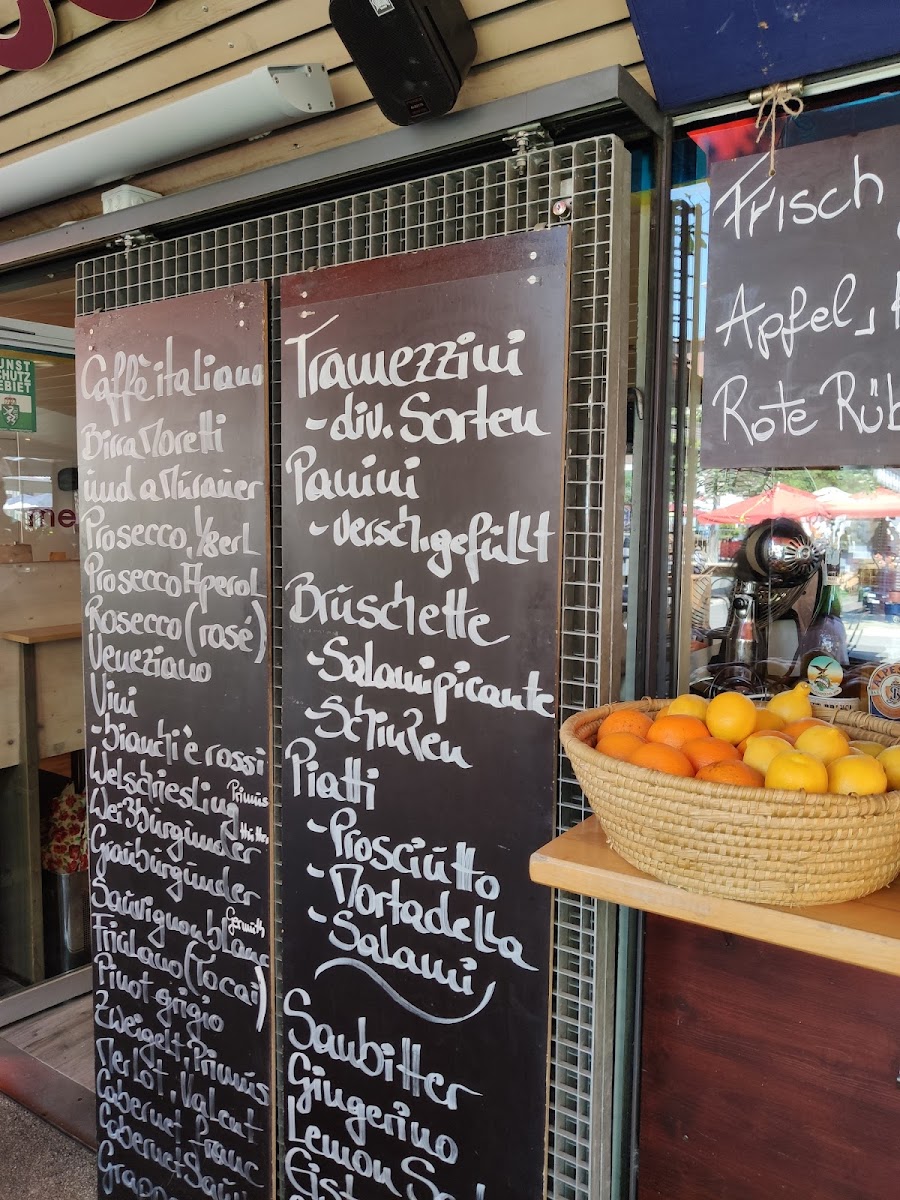 Caffè italiano
Birra Moretti
und a Murauer
Prosecco,
Prosecco Aperol
Rosecco (rosé)
Veneziano
Vini
-bianchi è rossi
Welschriesling Primus
Weißburgunder
Grauburgunder
Sauvignon blanc
Friulano (Tocai)
Pinot grigio
Zweigelt, Primus
Merlot, Valent
Cabernet franc
Cabernet Sauv
Grappa
Tramezzini
-div. Sorten
Panini
-versch. gefüllt
Brüschette
-Salami picante
-Schinken
Piatti
-Prosciutto
-Mortadella
-Salami
Sanbitter
Gingerino
Lemon So
Eist
Frisch
Apfel,
Rote Rüb
UNST
CHUTZ
EBIET
me